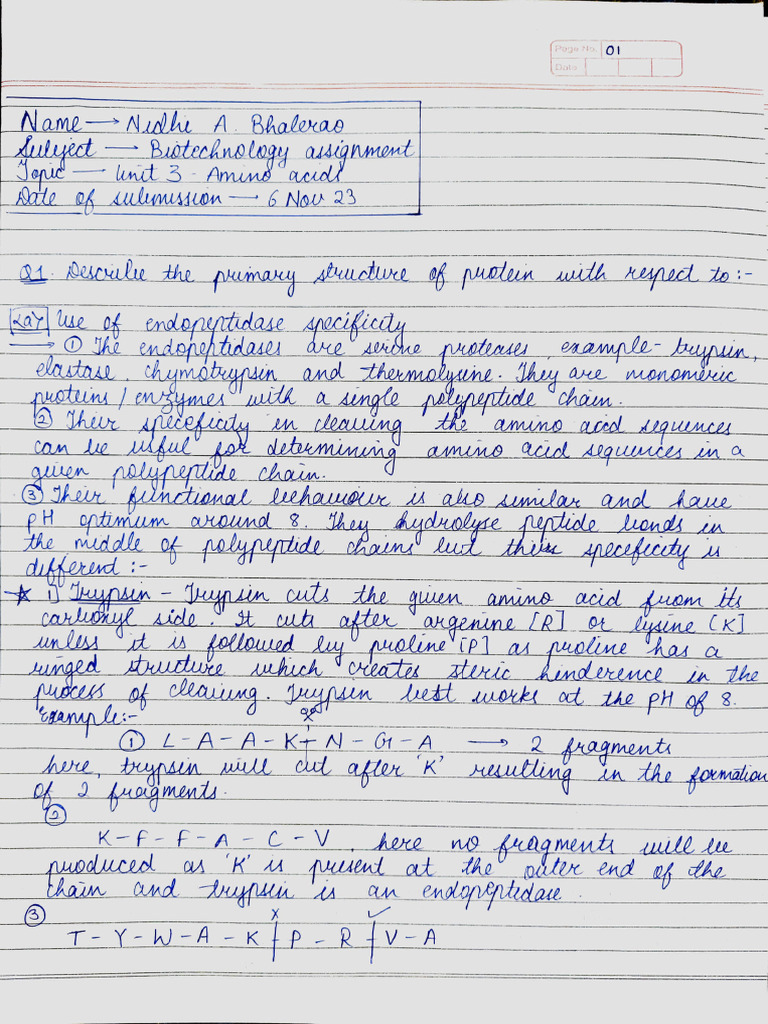 Page No. 01
Date
Name → Nidhi A. Bhalerao
Subject → Biotechnology assignment
Topic — Unit 3 - Amino acids
Date of submission → 6 Nov 23
Q1. Describe the primary structure of protein with respect to:-
[a] Use of endopeptidase specificity
→ ① The endopeptidases are serine proteases, example - trypsin,
elastase, chymotrypsin and thermolysine. They are monomeric
proteins/enzymes with a single polypeptide chain.
② Their specificity in cleaving the amino acid sequences
can be useful for determining amino acid sequences in a
given polypeptide chain.
③ Their functional behaviour is also similar and have
pH optimum around 8. They hydrolyse peptide bonds in
the middle of polypeptide chains but their specificity is
different :-
* i) Trypsin - Trypsin cuts the given amino acid from its
carbonyl side. It cuts after argenine [R] or lysine [K]
unless it is followed by proline [P] as proline has a
ringed structure which creates steric hinderence in the
process of cleaving. Trypsin best works at the pH of 8.
Example:-
① L - A - A - K + N - G - A → 2 fragments
here, trypsin will cut after 'K' resulting in the formation
of 2 fragments.
②
K - F - F - A - C - V, here no fragments will be
produced as 'K' is present at the outer end of the
chain and trypsin is an endopeptidase.
③
x ✓
T - Y - W - A - K + P - R + V - A